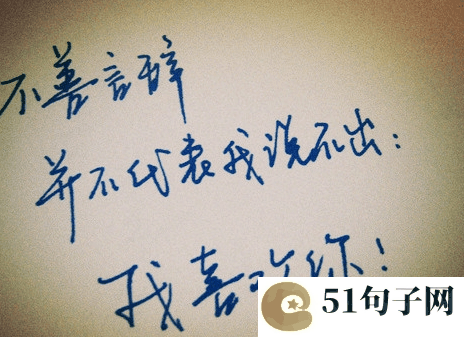 不善言辞
并不代表我说不出：
我喜欢你！
51句子网